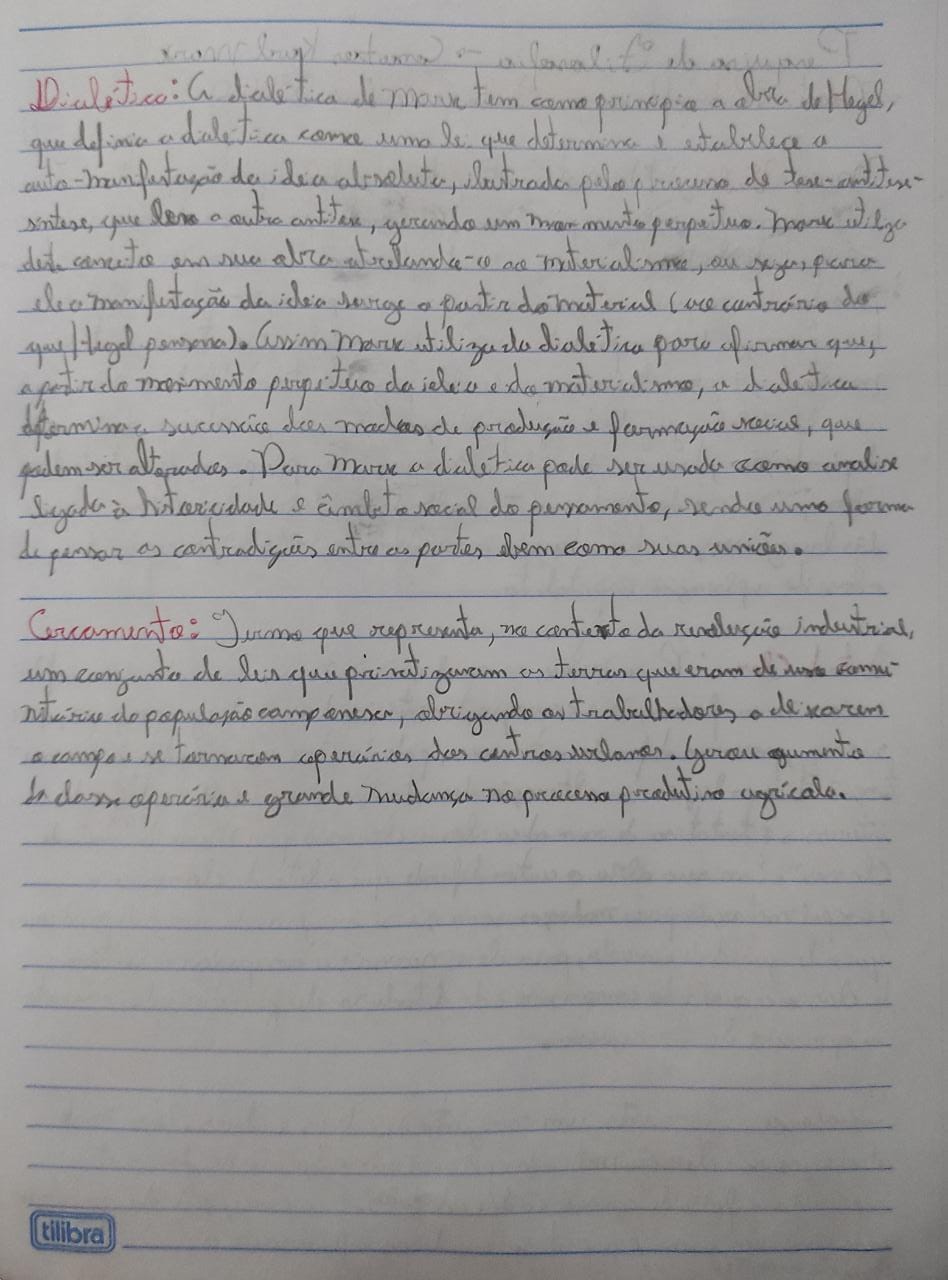 Dialética: A dialética de Marx tem como princípio a obra de Hegel,
que definia a dialética como uma lei que determina e estabelece a
auto-manifestação da idea absoluta, ilustrada pelo processo de tese-antítese-
síntese, que leva a outra antítese, gerando um movimento perpétuo. Marx utiliza
deste conceito em sua obra atrelando-o ao materialismo, ou seja, para
ele a manifestação da ideia surge a partir do material (ao contrário do
que Hegel pensava). Assim Marx utiliza da dialética para afirmar que,
a partir do movimento perpétuo da ideia e do materialismo, a dialética
determina a sucessão dos modos de produção e formação sociais, que
podem ser alterados. Para Marx a dialética pode ser usada como analise
ligada à historicidade e âmbito social do pensamento, sendo uma forma
de pensar as contradições entre as partes, bem como suas uniões.
Cercamento: Termo que representa, no contexto da revolução industrial,
um conjunto de leis que privatizavam as terras que eram de uso comu-
nitário da população camponesa, obrigando os trabalhadores a deixarem
o campo e se tornarem operários dos centros urbanos. Gerou aumento
da classe operária e grande mudança no processo produtivo agrícola.
tilibra